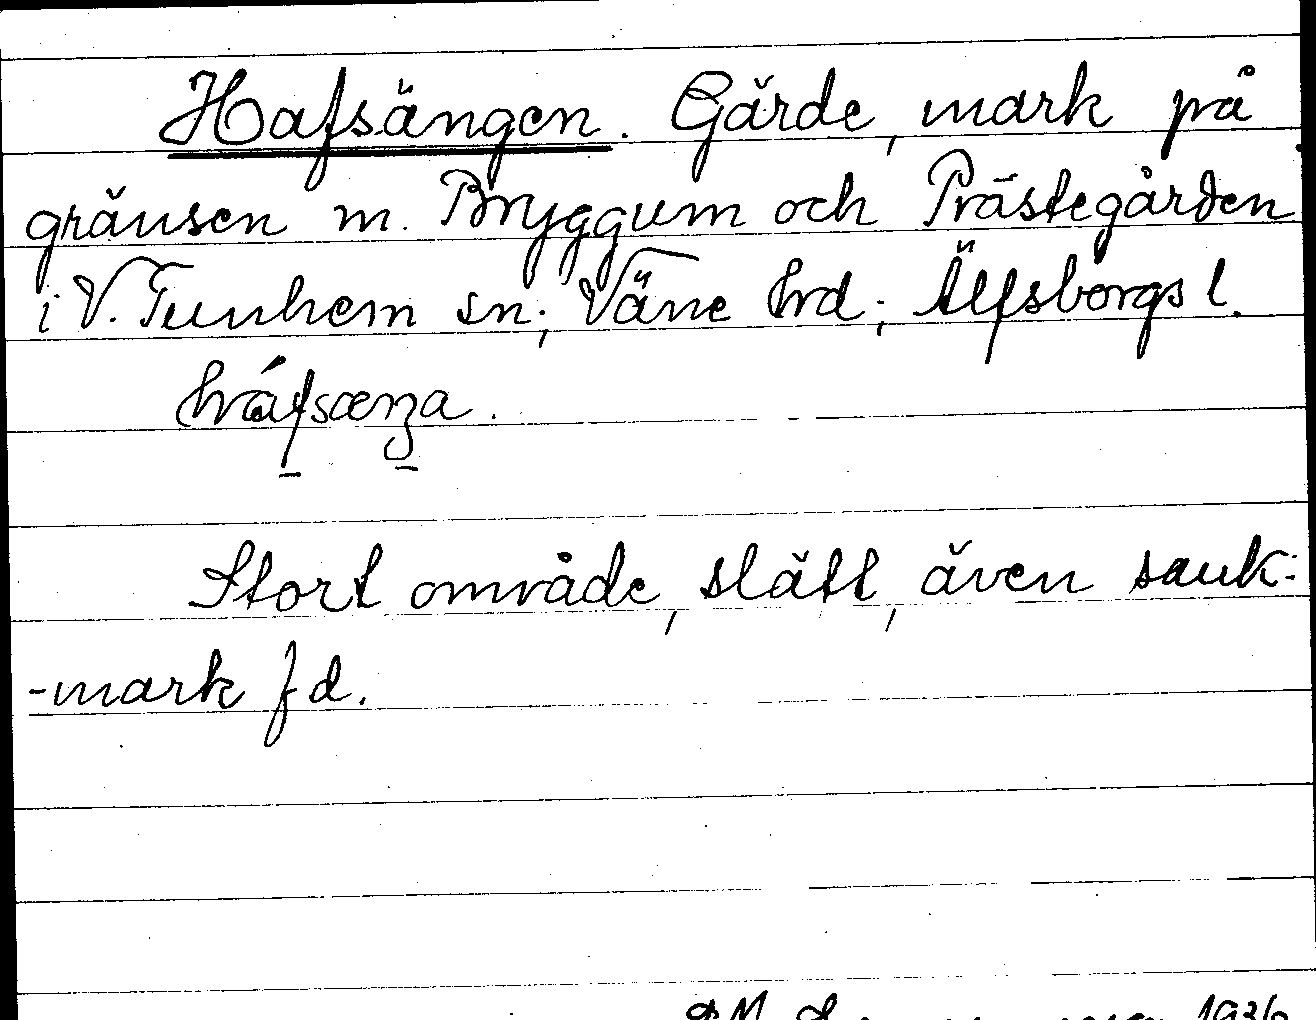 Hafsängen. Gärde, mark på
gränsen m. Bryggum och Prästegården
i V. Tunhem sn; Väne hrd; Älfsborgs l.
háfsæŋa.
Stort område, slätt, även sank-
-mark f d.
1936